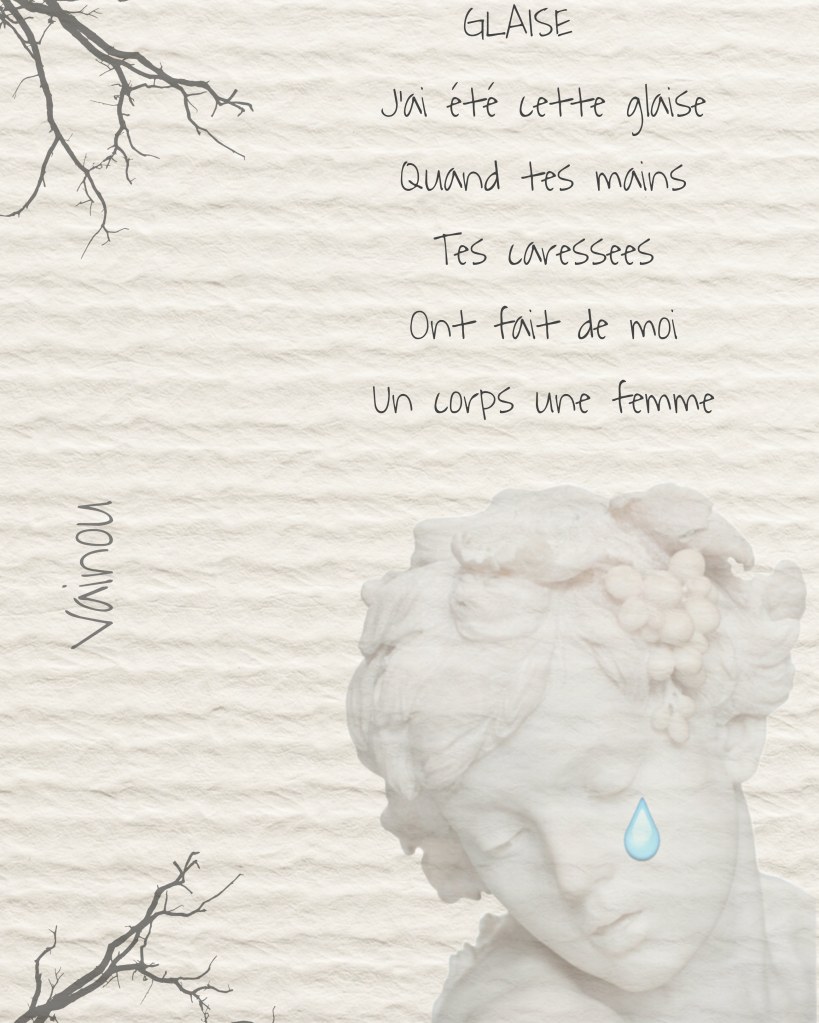 GLAISE
J'ai été cette glaise
Quand tes mains
Tes caressees
Ont fait de moi
Un corps une femme
Vainou